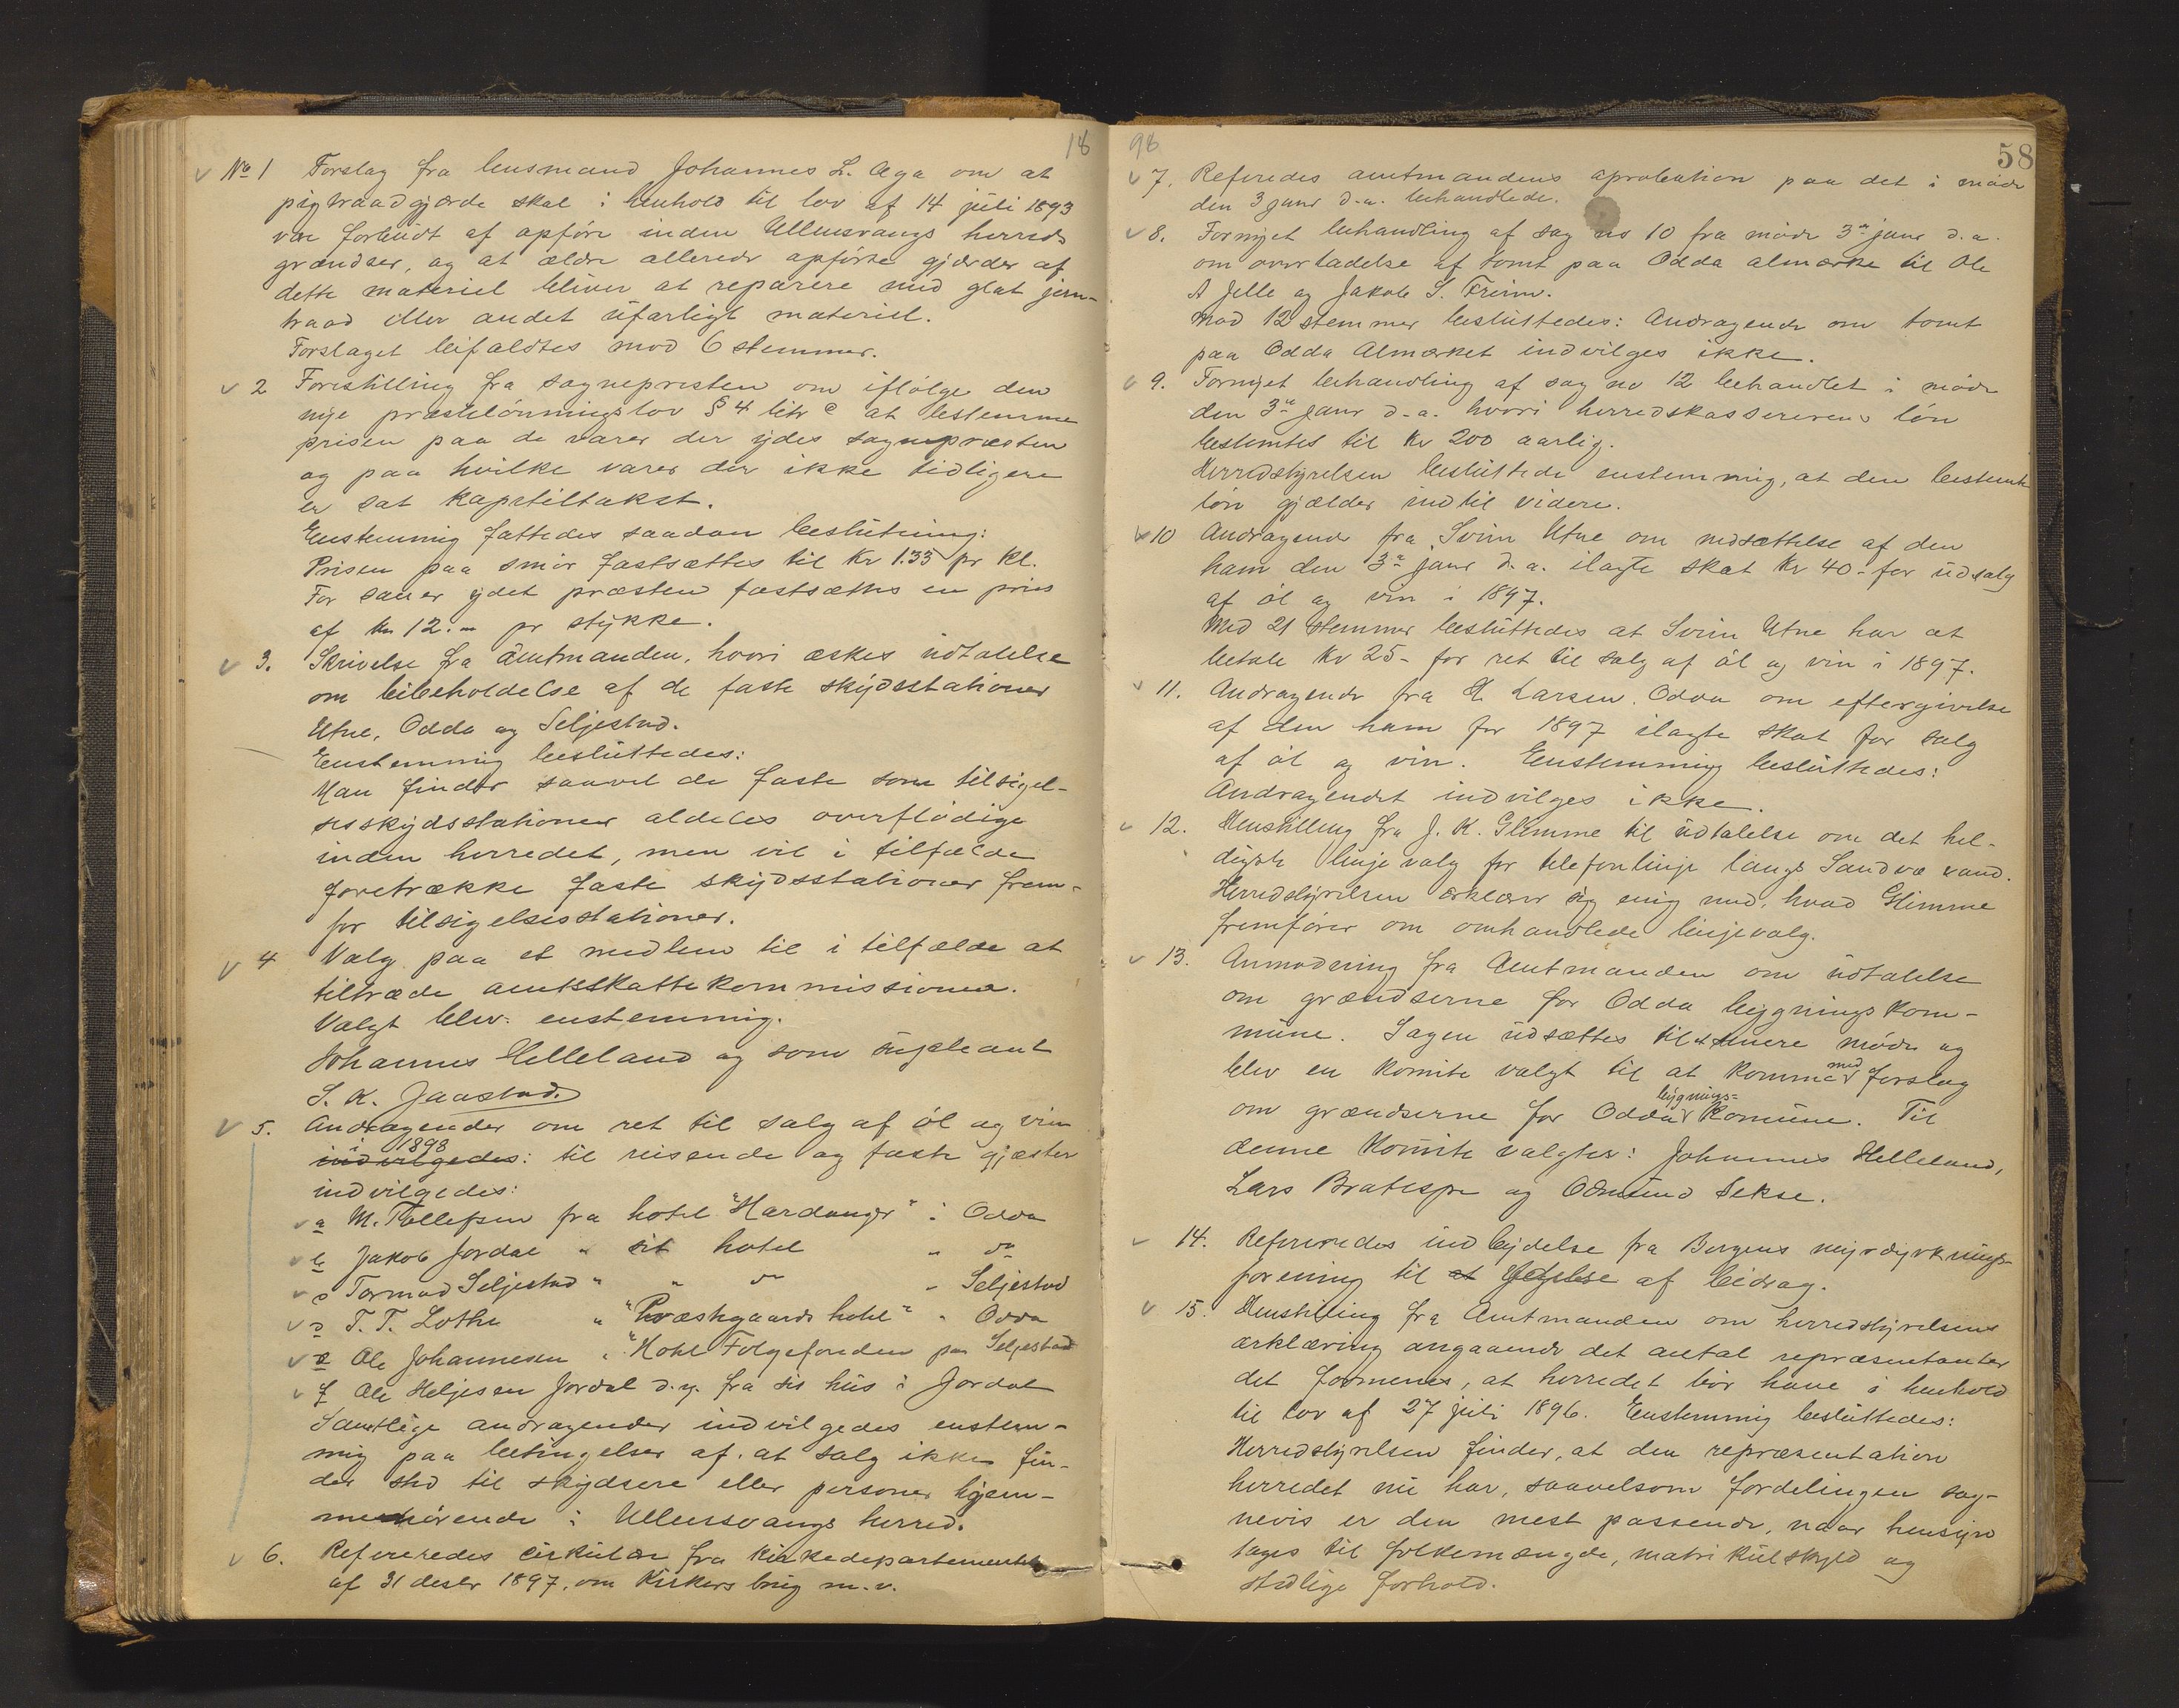 18
No 1 Forslag fra lensmand Johannes L. Aga om at
pigtraadgjærde skal i henhold til lov af 14 juli 1893
være forbudt af opføre inden Ullensvangs herreds
grændser, og at ældre allerede opførte gjærder af
dette materiel bliver at reparere med glat jern-
traad eller andet ufarligt materiel.
Forslaget bifaldtes mod 6 stemmer.
2 Forestilling fra sognepresten om ifølge den
nye præstelønningslov § 4 litr c at bestemme
prisen paa de varer der ydes sognepræsten
og paa hvilke varer der ikke tidligere
er sat kapiteltakst.
Enstemmig fattedes saadan beslutning:
Prisen paa smør fastsættes til Kr 1.35 pr Kl.
For sauer ydet præsten fastsættes en pris
af Kr 12.- pr stykke.
3. Skrivelse fra amtmanden, hvori æskes udtalelse
om bibeholdelse af de faste skydsstationer
Utne, Odda og Seljestad.
Enstemmig besluttedes:
Man finder saavel de faste som tilsigel-
sesskydsstationer aldeles overflødige
inden herredet, men vil i tilfælde
foretrække faste skydsstationer frem-
for tilsigelsesstationer.
4 Valg paa et medlem til i tilfælde at
tiltræde amtsskattekommissionen.
Valgt blev enstemmig.
Johannes Helleland og som supleant
S. K. Jaastad.
5. Andragender om ret til salg af øl og vin
i 1898
indvilgedes: til reisende og faste gjæster
indvilgedes:
a M. Tollefsen fra hotel "Hardanger" i Odda
b Jakob Jordal " sit hotel " do
c Tormod Seljestad " " do " Seljestad
d T. T. Lothe " "Præstegaards hotel" " Odda
e Ole Johannesen " "Hotel Folgefonden paa Seljestad
f Ole Heljesen Jordal d.y. fra sit hus i Jordal
Samtlige andragender indvilgedes enstem-
mig paa betingelser af. at salg ikke fin-
der sted til skydsere eller personer hjem-
mehørende i Ullensvangs herred.
6. Refereredes cirkulære fra Kirkedepartementet
af 31 desbr 1897, om Kirkers brug m.v.
98
58
7. Referedes amtmandens aprobation paa det i møde
den 3 janr d.a. behandlede.
8. Fornyet behandling af sag no 10 fra møde 3die janr d.a.
om overladelse af tomt paa Odda almærke til Ole
A Jelle og Jakob S. Freim.
Mod 12 stemmer besluttedes: Andragende om tomt
paa Odda Almærket indvilges ikke.
9. Fornyet behandling af sag no 12 behandlet i møde
den 3die janr d.a. hvori herredskassererens løn
bestemtes til Kr 200 aarlig.
Herredstyrelsen besluttede enstemmig, at den bestemte
løn gjælder indtil videre.
10 Andragende fra Svein Utne om nedsættelse af den
ham den 3die janr d.a. ilagte skat Kr 40- for udsalg
af øl og vin i 1897.
Med 21 stemmer besluttedes at Svein Utne har at
betale Kr 25- for ret til salg af øl og vin i 1897.
11. Andragende fra H Larsen. Odda om eftergivelse
af den ham for 1897 ilagte skat for salg
af øl og vin. Enstemmig besluttedes:
Andragendet indvilges ikke.
12. Henstilling fra J. K. Glimme til udtalelse om det hel-
digste linjevalg for telefonlinje langs Sandve vand.
Herredstyrelsen erklærer sig enig med, hvad Glimme
fremfører om omhandlede linjevalg.
13. Anmodning fra Amtmanden om udtalelse
om grændserne for Odda bygningskom-
mune. Sagen udsættes til et senere møde og
blev en komite valgt til at komme med forslag
om grændserne for Odda bygnings= komune. Til
denne Komite valgtes: Johannes Helleland,
Lars Bratespe og Odmund Sekse.
14. Refereredes indbydelse fra Bergens myrdyrknings-
forening til at ydelse af bidrag.
15. Henstilling fra Amtmanden om herredstyrelsens
erklæring angaaende det antal repræsentanter
det formenes, at herredet bør have i henhold
til lov af 27 juli 1896. Enstemmig besluttedes:
Herredstyrelsen finder, at den repræsentation
herredet nu har, saavelsom fordelingen sog-
nevis er den mest passende, naar hensyn
tages til folkemængde, matrikulskyld og
stedlige forhold.